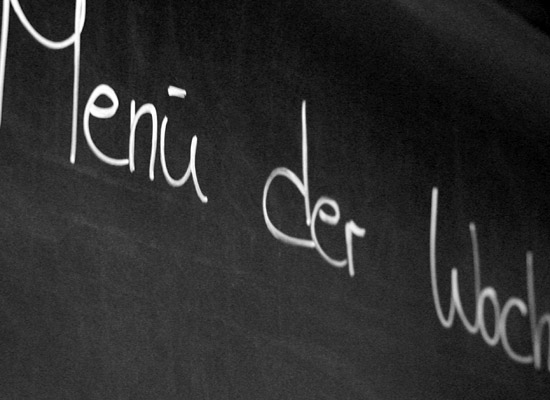 Menü der Woch